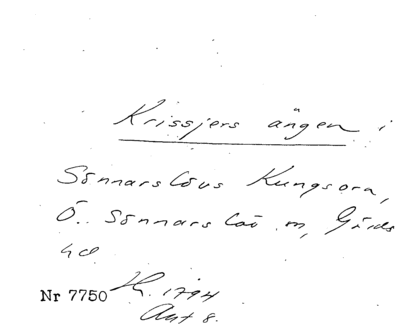 Krissjers ängen i
Sönnarslövs Kungsora,
Ö. Sönnarslöv m, Gärds
hd
Nr 7750 H. 1794
Akt 8.